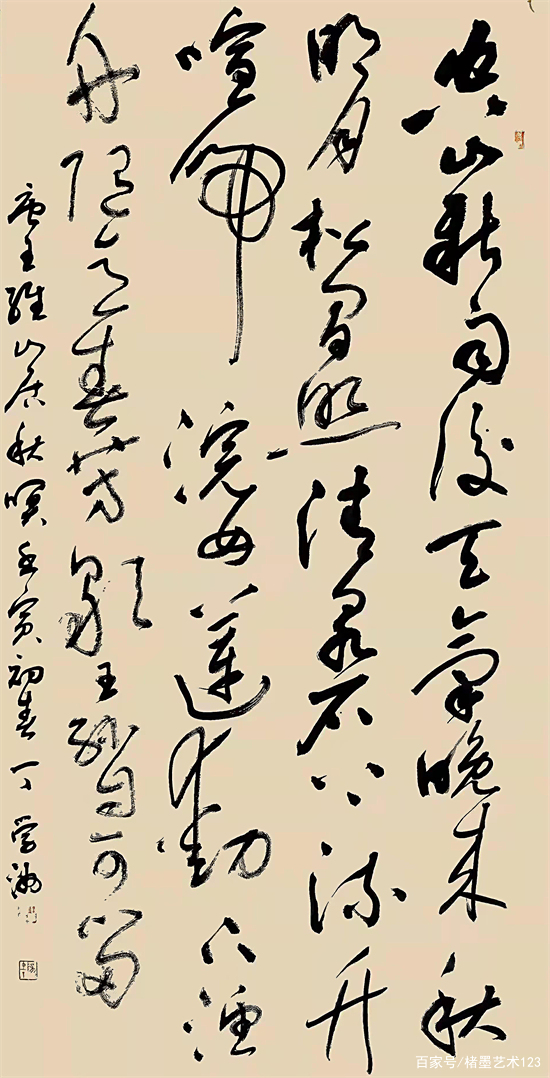 空山新雨後天氣晚来秋
明月松間照清泉石上流竹
喧歸浣女蓮動下漁
舟随意春芳歇王孫自可留
唐王維山居秋暝壬寅初春丁学
百家号/楮墨艺术123